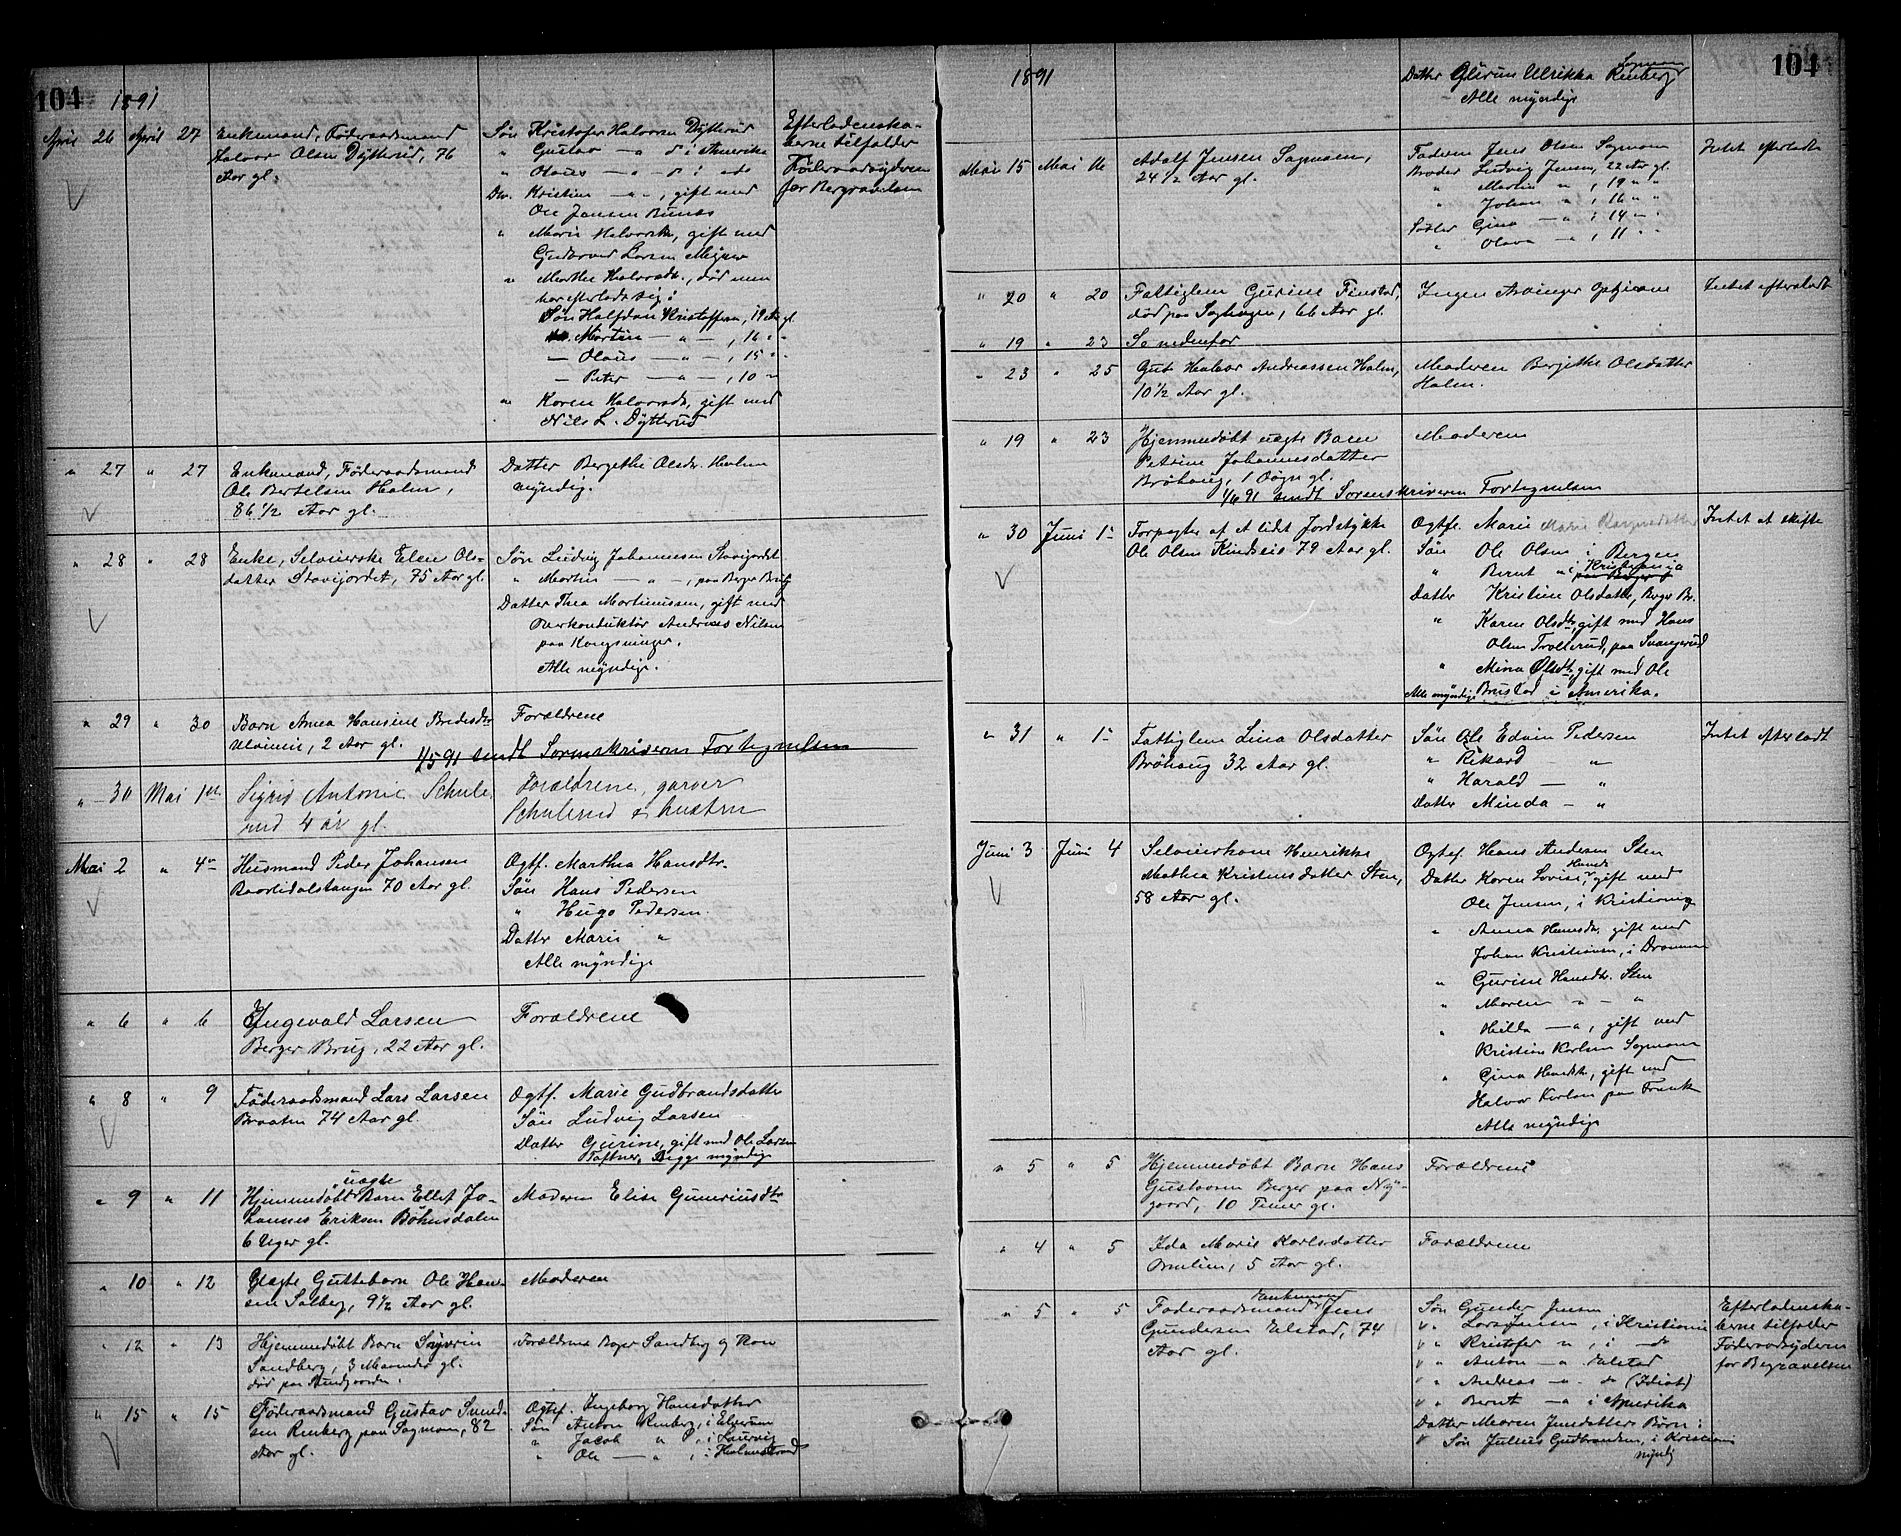 104
1891
April 26 April 27 Enkemand, Föderaadsmand
Halvor Olsen Dÿtterud, 76
Aar gl.
Sön Kristofer Halvorsen Dÿtterud
" Gustav — " — i Amerika
" Olaus — " — i do
Dtr. Kristine — " —, gift med
Ole Jensen
" Marie Halvorsdtr, gift med
Gudbrand Larsen
" Marthe Halvorsdtr., död men
har efterladt sig:
Sön Halfdan Kristoffersen, 19 Aar gl.
Martin — " —, 16 " "
— Olaus — " —, 15 " "
— Peter — " —, 10 "
" Karen Halvorsdtr, gift med
Nils L. Dÿtterud
Efterladenska-
berne tilfalder
Föderaadsyderen
for Begravelsen
" 27 " 27 Enkemand, Föderaadsmand
Ole Bertelsen Holm,
86 1/2 Aar gl.
Datter Bergethe Olsdr. Holm
myndig.
" 28 " 28 Enke, Selveierske Elen Ols-
datter Stavijordet, 75 Aar gl.
Sön Ludvig Johannessen Stavijordet
" Martin — " —, paa Berger Brug
Datter Thea Martinussen, gift med
Overkonduktör Andreas Nilsen
paa Kongsvinger.
Alle myndige.
" 29 " 30 Barn Anna Hansine Bredesdtr
2 Aar gl.
Forældrene
1/5 91 sendt Sorenskriveren Fortegnelsen
" 30 Mai 1ste Sigrid Antonie Schule-
rud 4 år gl.
Forældrene, garver
Schulerud & hustru
Mai 2 " 4de Husmand Peder Johansen
70 Aar gl.
Ogtf. Marthea Hansdtr.
Sön Hans Pedersen
" Hugo Pedersen
Datter Marie "
Alle myndige
" 6 " 6 Yngevald Larsen
Berger Brug, 22 Aar gl.
Forældrene
" 8 " 9 Föderaadsmand Lars Larsen
Braaten 74 Aar gl.
Ogtf. Marie Gudbrandsdatter
Sön Ludvig Larsen
Datter Gurine, gift med Ole Larsen
Toftner, Begge myndige
" 9 " 11 uægte
Hjemmedöbt Barn Ellef Jo-
hannes Eriksen Böhnsdalen
6 Uger gl.
Moderen Elise Guneriusdtr
" 10 " 12 Uægte Guttebarn Ole Han-
sen Solberg, 9 1/2 Aar gl.
Moderen
" 12 " 13 Hjemmedöbt Barn Sigurin
Sandberg, 3 Maaneder gl.
död paa
Forældrene Roger Sandberg og Kone
" 15 " 15 Föderaadsmand Gustav Sund-
sen Renberg paa Sagmoen, 82
Aar gl.
Ogtef. Ingeborg Hansdatter
Sön Anton Renberg, i Elverum
" Jacob " , i Laurvig
" Ole — " , i Holmestrand
1891
104
Datter Gurine Ulrikka Renberg Sagmoen
Alle myndige
Mai 15 Mai 16 Adolf Jensen Sagmoen,
24 1/2 Aar gl.
Faderen Jens Olsen Sagmoen
Broder Ludvig Jensen, 22 Aar gl.
" Martin " , 19 " "
" Johan " , 16 " "
Söster Gina — " , 14 — "
" Olava — " , 11 " "
Intet efterladt
" 20 " 20 Fattiglem Gurine Finstad,
död paa 66 Aar gl.
Ingen Arvinger
Intet efterladt
" 19 " 23 Se nedenfor
" 23 " 25 Gut Halvor Andreassen Holm,
10 1/2 Aar gl.
Moderen Bergithe Olsdatter
Holm.
" 19 " 23 Hjemmedöbt uægte Barn
Petrine Johannesdatter
Bröhaug, 1 Dögn gl.
Moderen
1/6 91 sendt Sorenskriveren Fortegnelsen
" 30 Juni 1ste Forpagter af et lidt Jordstykke
Ole Olsen Kindseie 79 Aar gl.
Ogtf. Marie Marie
Sön Ole Olsen i Bergen
" Bernt " i Kristiania
Datter Kristine Olsdatter, Berger Br.
" Karen Olsdtr, gift med Hans
Olsen Trollerud, paa
" Mina Olsdtr, gift med Ole
Alle myndige Brustad i Amerika.
Intet at skifte
" 31 " 1ste Fattiglem Lina Olsdatter
Bröhaug 32 Aar gl.
Sön Ole Edvin Pedersen
" Rikard — "
" Harald — "
Datter Minda — "
Intet efterladt
Juni 3 Juni 4 Selveierkone Henrikke
Mathea Kristensdatter Sten,
58 Aar gl.
Ogtef. Hans Andersen Sten
Datter Karen Lovise Hansdtr, gift med
Ole Jensen, i Kristiania
" Anna Hansdtr, gift med
Johan Kristiansen, i Drammen
" Gurine Hansdtr. Sten
" Maren " — "
" Hilda — ", gift med
Kristian Karlsen Sagmoen
" Gina Hansdtr, gift med
Halvor Karlsen paa
Alle myndige
" 5 " 5 Hjemmedöbt Barn Hans
Gustavsen Berger paa Ny-
gaard, 10 Timer gl.
Forældrene
" 4 " 5 Ida Marie Karlsdatter
5 Aar gl.
Forældrene
" 5 " 5 Enkemand
Föderaadsmand Jens
Gundersen Elstad, 74
Aar gl.
Sön Gunder Jensen
" " Lars Jensen, i Kristiania
" " Kristofer " , i — do
" " Anton — " Elstad
" " Andreas — " — do (Idiot)
" " Bernt — " i Amerika
Datter Maren Jensdatters Börn:
" Sön Julius Gudbrandsen, i Kristiania
myndig
Efterladenska-
berne tilfalder
Föderaadsyderen
for Begravelsen